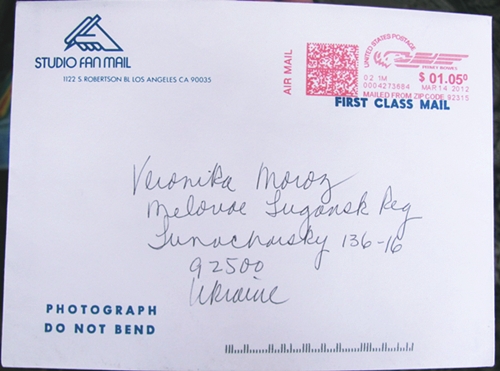 STUDIO FAN MAIL
1122 S ROBERTSON BL LOS ANGELES CA 90035
AIR MAIL
UNITED STATES POSTAGE
PITNEY BOWES
02 1M
$ 01.05⁰
0004273684
MAR 14 2012
MAILED FROM ZIP CODE 92315
FIRST CLASS MAIL
Veronika Moroz
Melovoe Lugansk Reg
Lunacharsky 136-16
92500
Ukraine
PHOTOGRAPH
DO NOT BEND